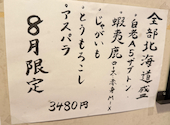 全部北海道盛
・白老A5ザブトン
・蝦夷鹿
・じゃがいも
・とうもろこし
・アスパラ
3480円
8月限定